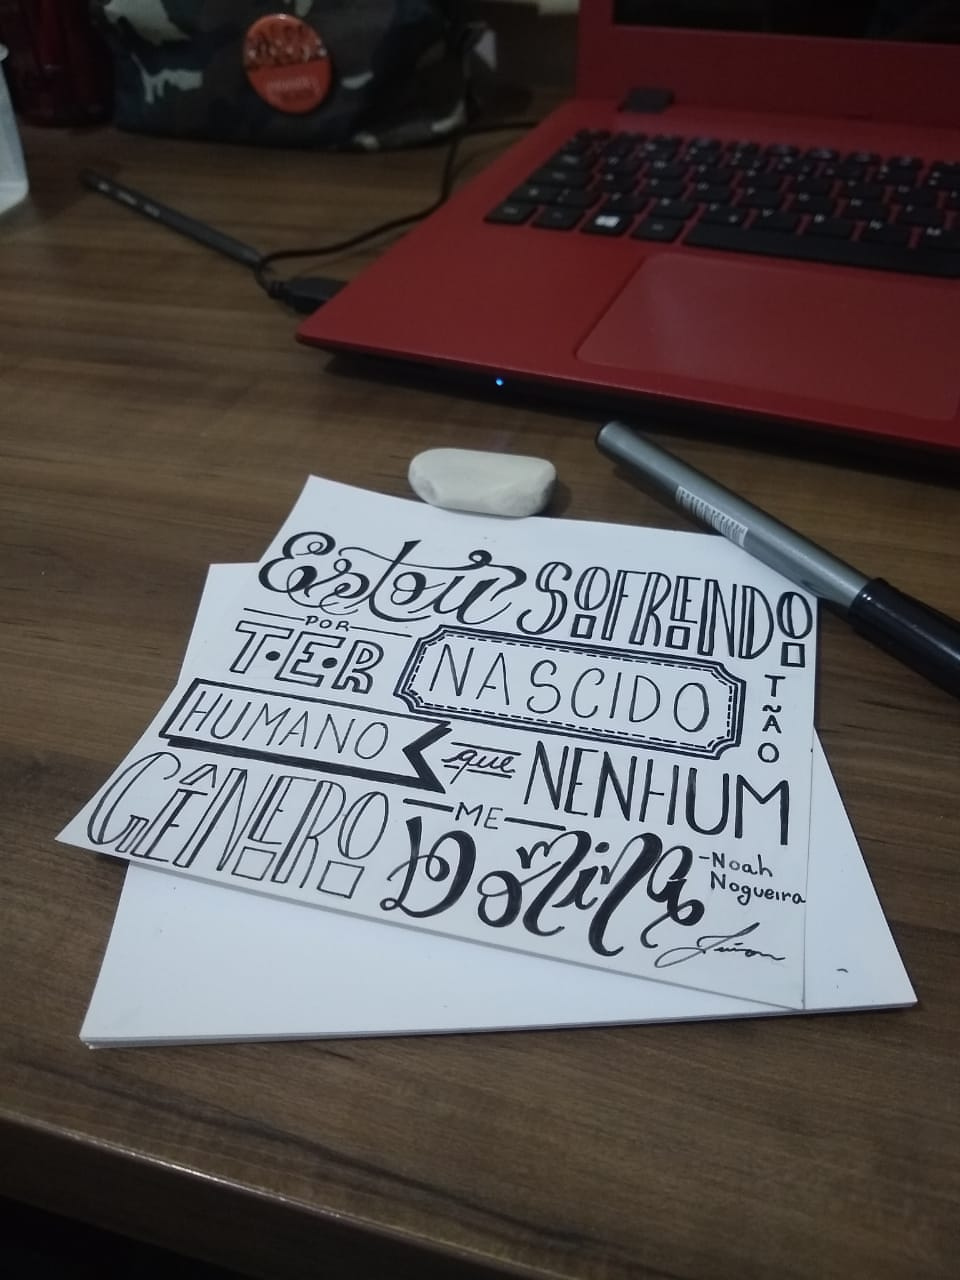 Estou SOFRENDO
POR
TER NASCIDO TÃO
HUMANO que NENHUM
GÊNERO ME DOMINA
-Noah
Nogueira